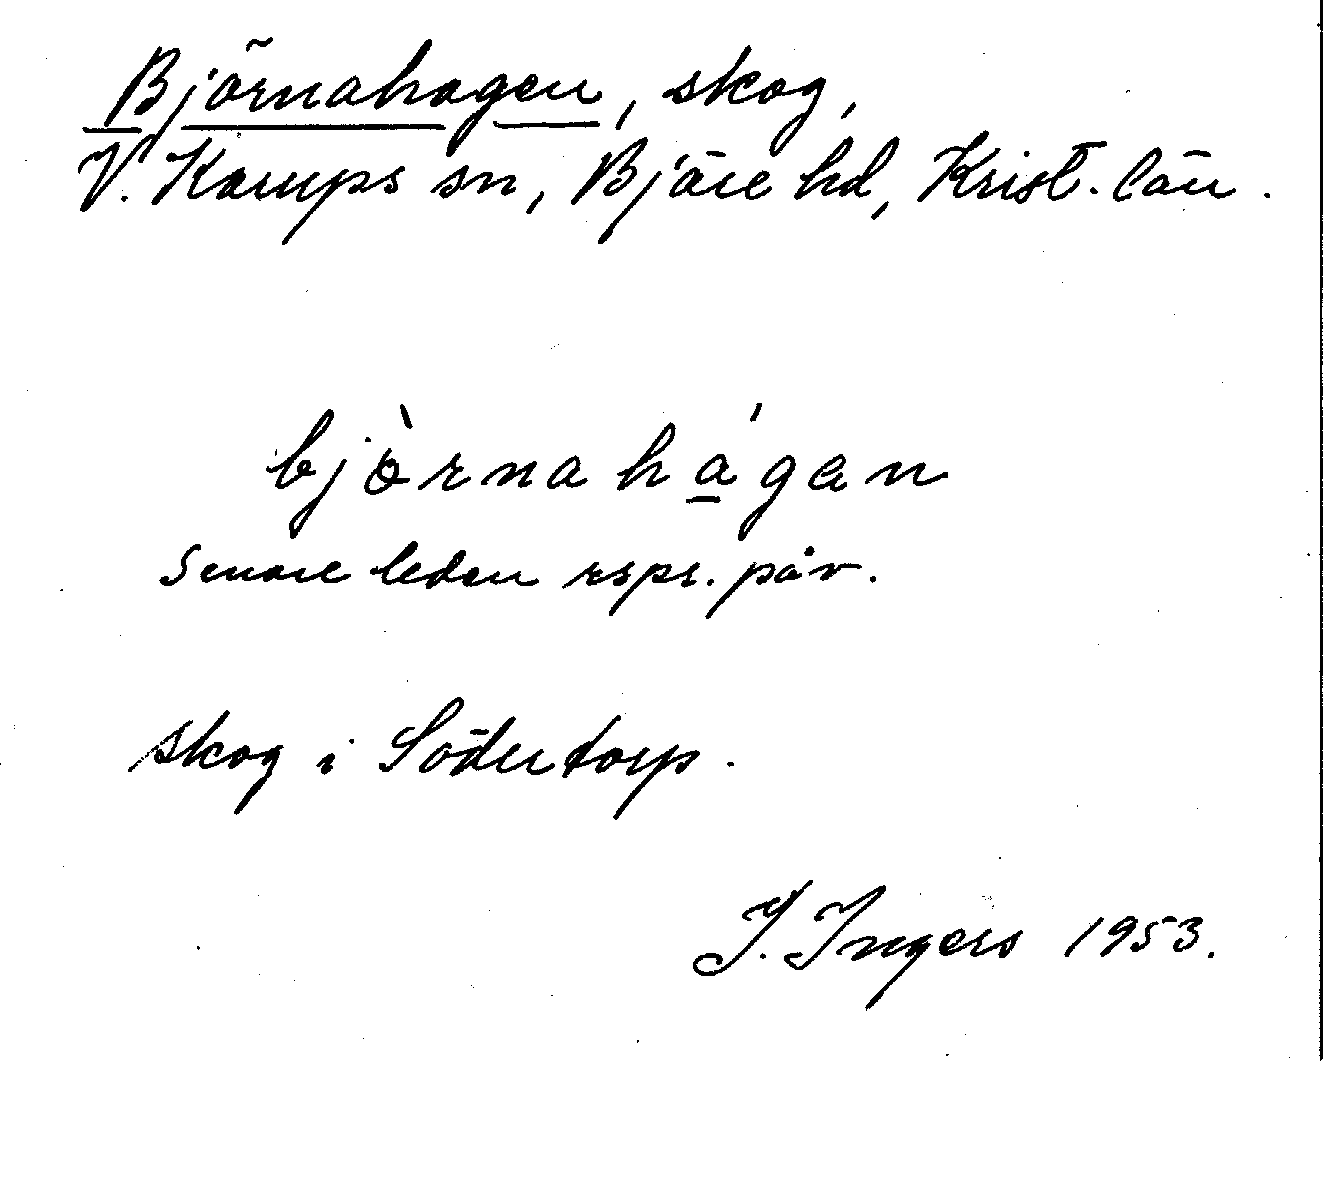 Björnahagen, skog,
V. Karups sn, Bjäre hd, Krist. län.
bjö̀rnahá̱gen
Senare leden rspr. påv.
skog i Södertorp.
I. Ingers 1953.